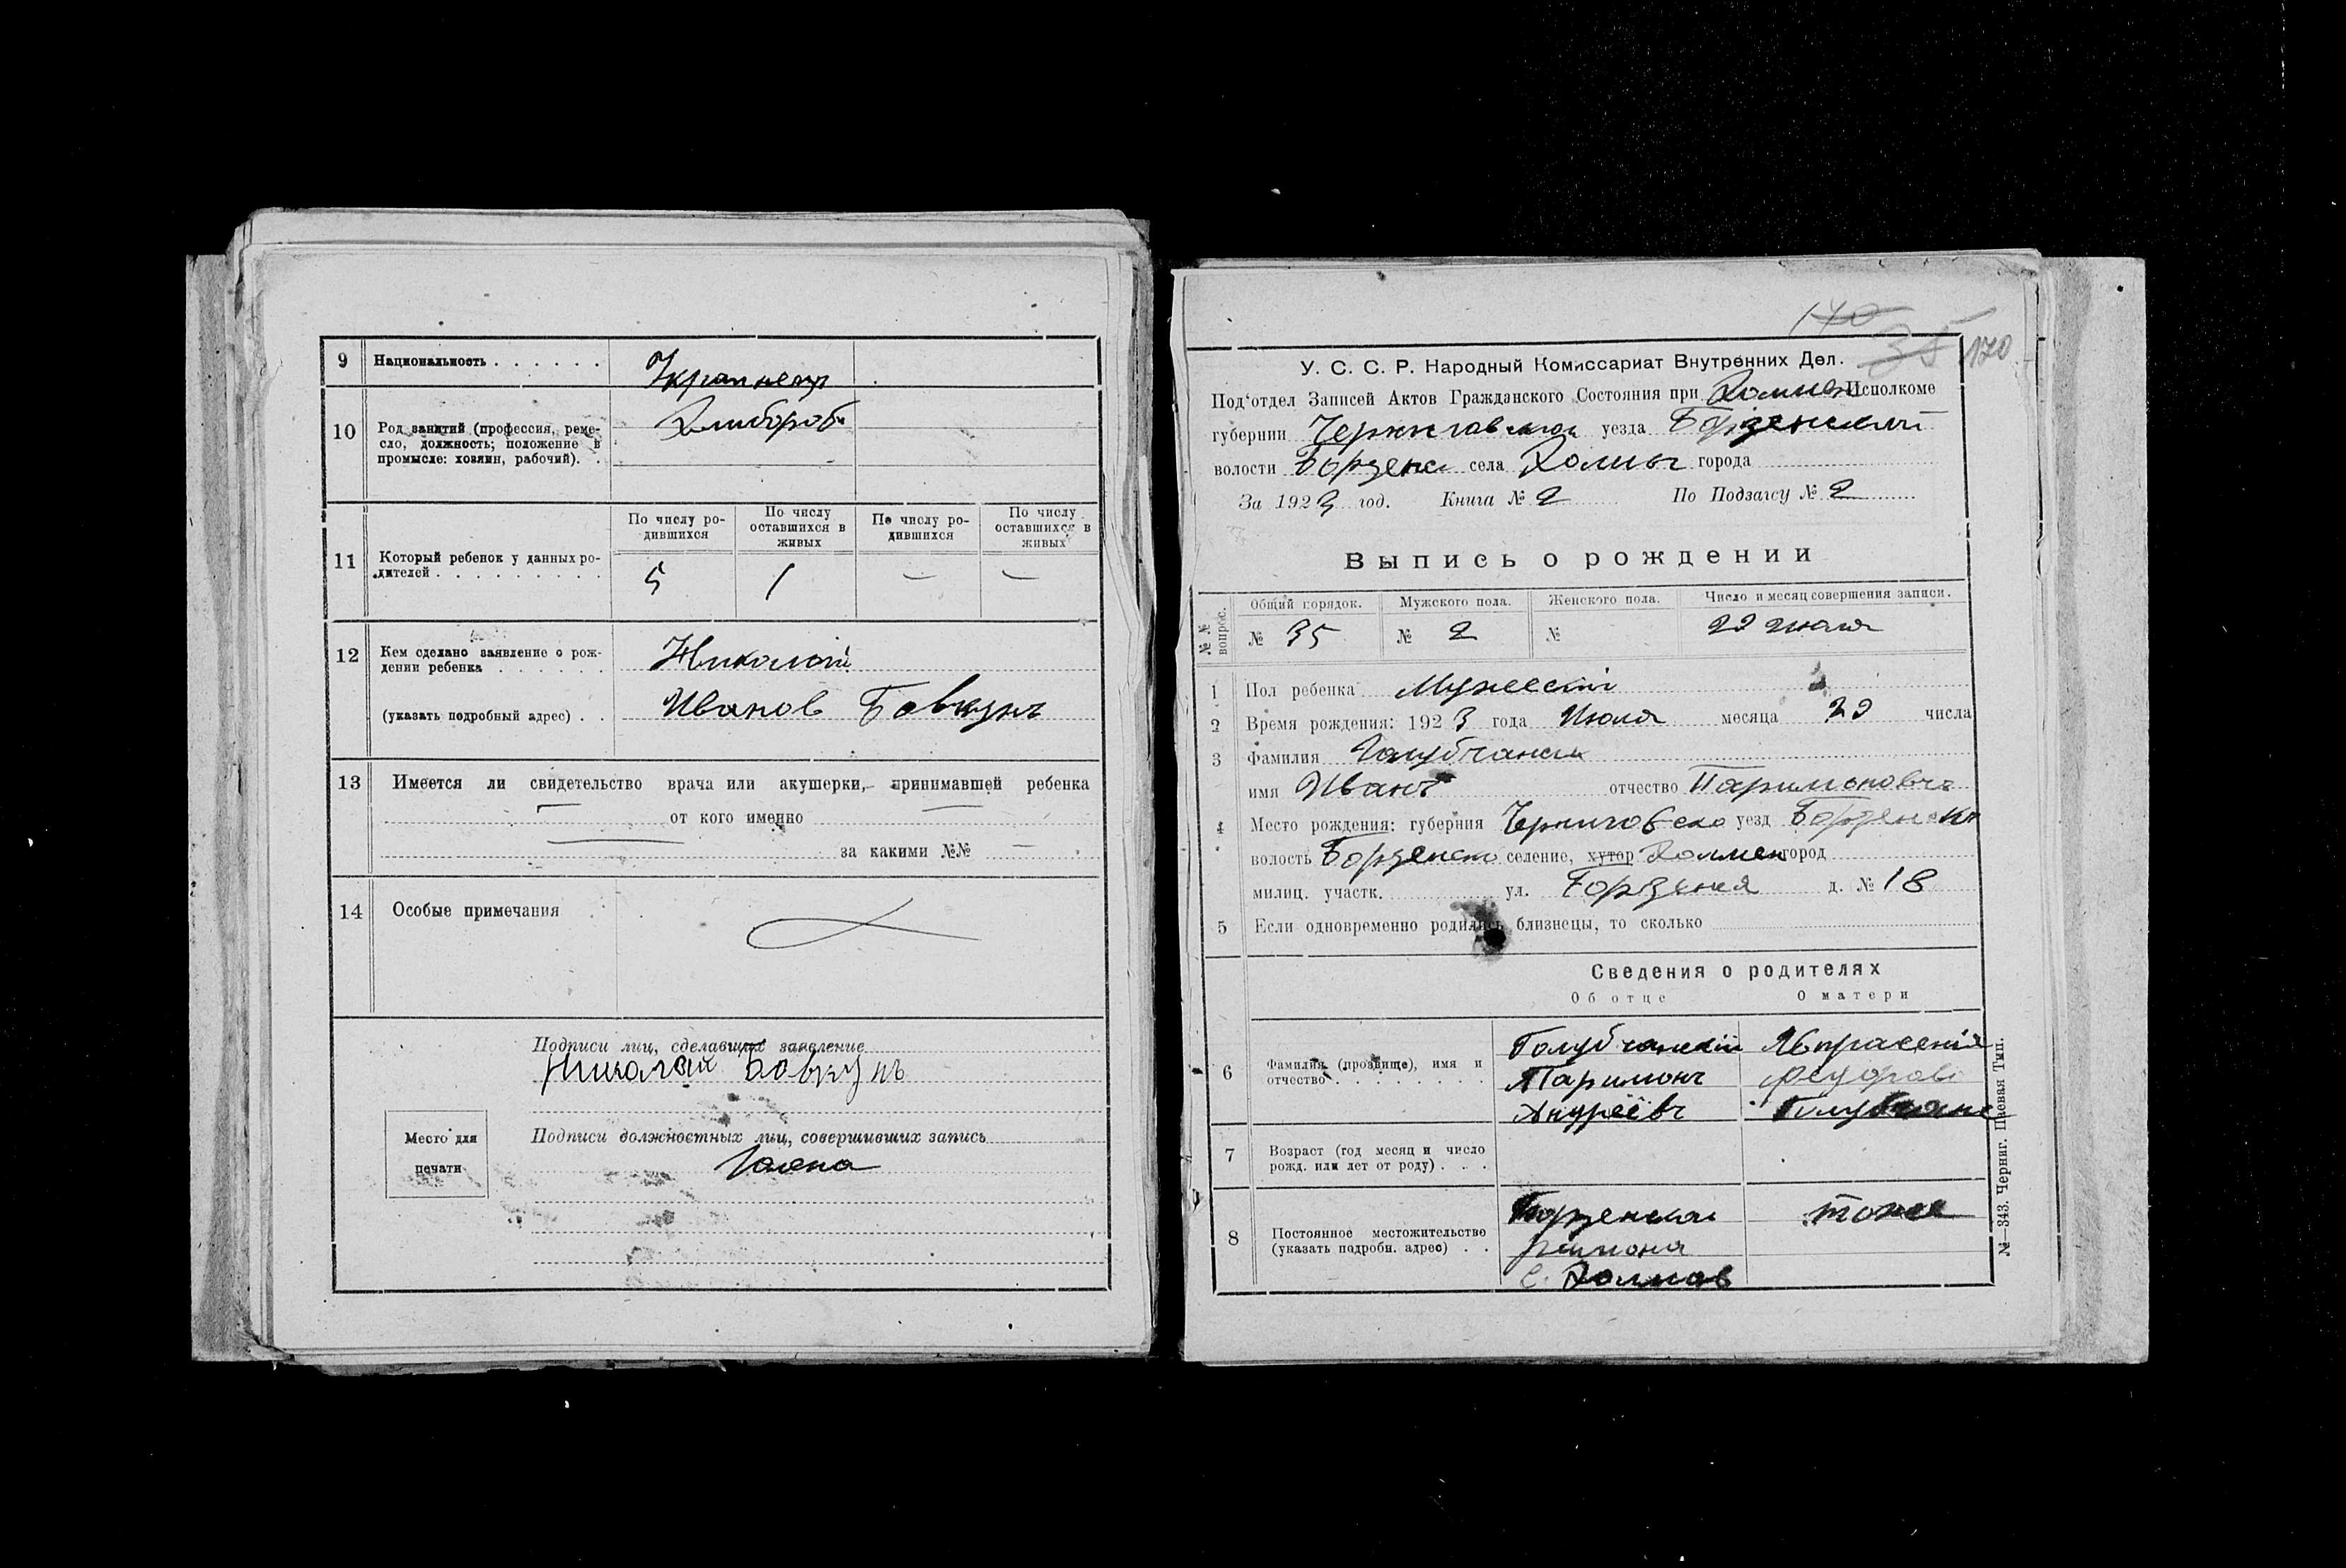 9 Национальность . . . . . . Украинець
10 Род занятий (профессия, реме-
сло, должность; положение в
промысле: хозяин, рабочий). . Хлибороб
11 Который ребенок у данных ро-
дителей . . . . . . . . .
По числу ро-
дившихся
По числу
оставшихся в
живых
По числу ро-
дившихся
По числу
оставшихся в
живых
5 1 — —
12 Кем сделано заявление о рож-
дении ребенка . . . . . . Николай
(указать подробный адрес) . . Иванов Бовкунъ
13 Имеется ли свидетельство врача или акушерки, принимавшей ребенка
— от кого именно —
— за какими №№ —
14 Особые примечания
Подписи лиц, сделавших заявление
Николай Бовкунъ
Место для
печати
Подписи должностных лиц, совершивших запись
170
35 170
У. С. С. Р. Народный Комиссариат Внутренних Дел.
Под'отдел Записей Актов Гражданского Состояния при Холмен Исполкоме
губернии Черниговской уезда Борзенский
волости Борзенс села Холмы города
За 1923 год. Книга № 2 По Подзагсу № 2
Выпись о рождении
№ №
вопрос.
Общий порядок. Мужского пола. Женского пола. Число и месяц совершения записи.
№ 35 № 2 № 22 июля
1 Пол ребенка Мужескій
2 Время рождения: 1923 года Июля месяца числа
3 Фамилия Голубчанск
имя Иванъ отчество Паримоновъ
4 Место рождения: губерния Черниговско уезд Борзенско
волость Борзенско селение, хутор Холмен город
милиц. участк. ул. д. № 18
5 Если одновременно родились близнецы, то сколько
Сведения о родителях
Об отце О матери
6 Фамилия (прозвище), имя и
отчество . . . . . . . .
Голубчанский
Паримонъ
Андреевъ
Федоров
Голубчанс
7 Возраст (год месяц и число
рожд. или лет от роду) . . .
8 Постоянное местожительство
(указать подробн. адрес) . .
Борзенской тоже
района
с. Холмов
№—343. Черниг. Паевая Тип.